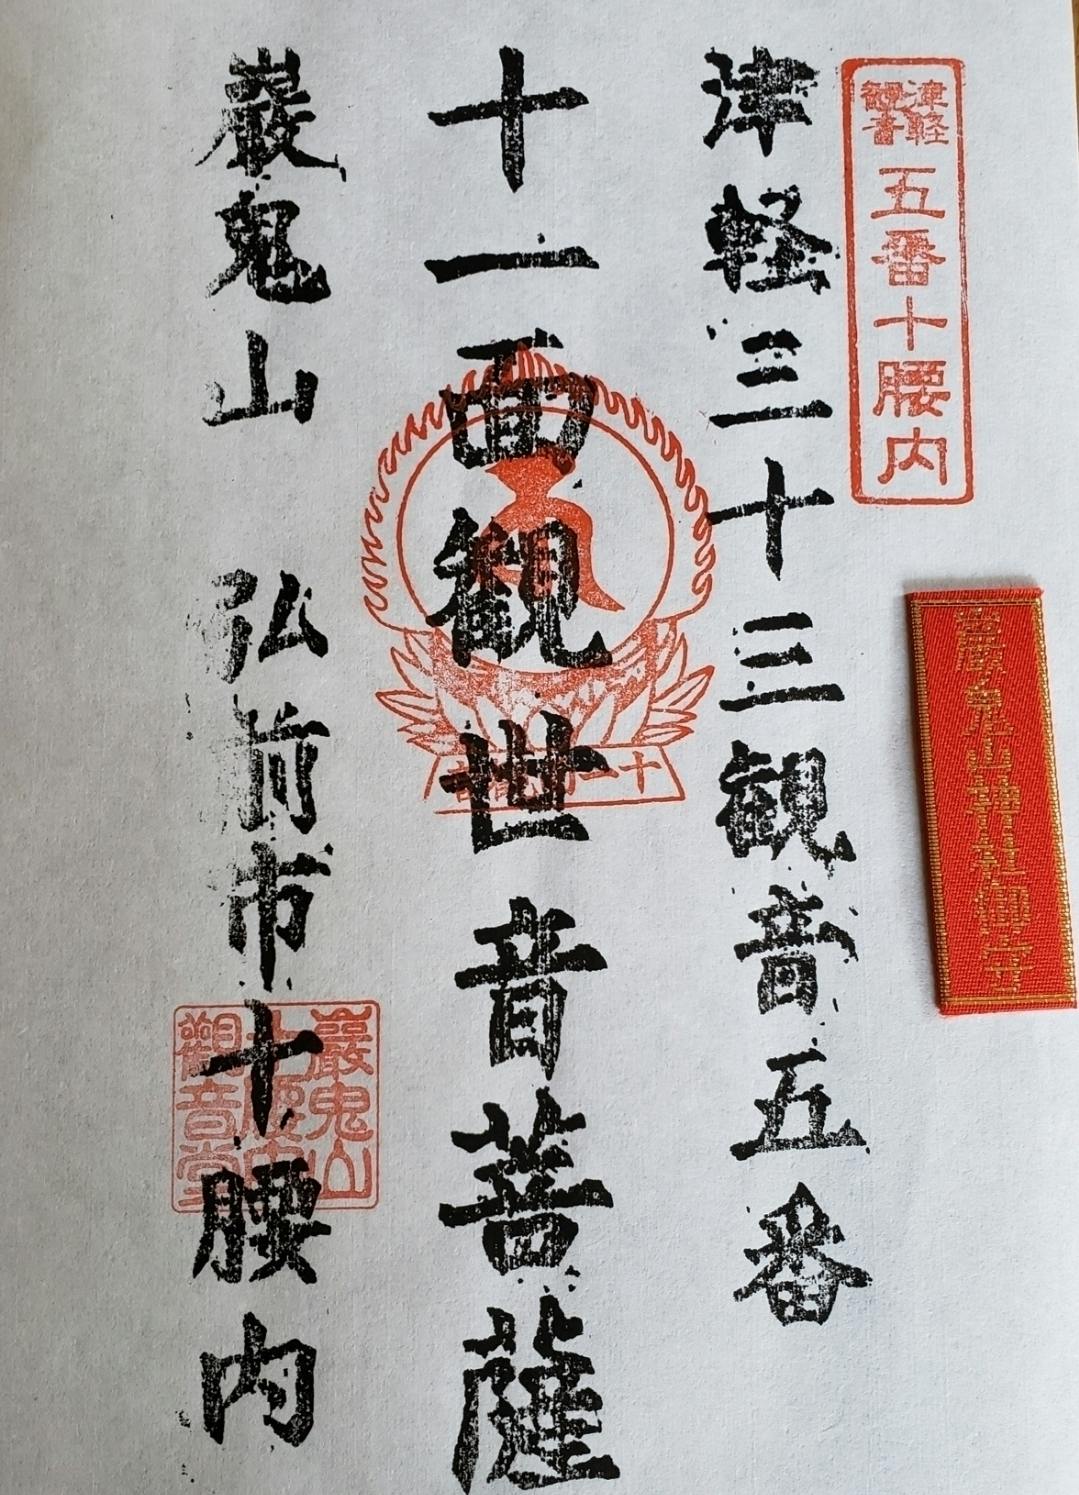 津軽
観音
五番十腰内
津軽三十三観音五番
十一面観世音菩薩
巌鬼山 弘前市十腰内
巖鬼山
十腰内
觀音堂